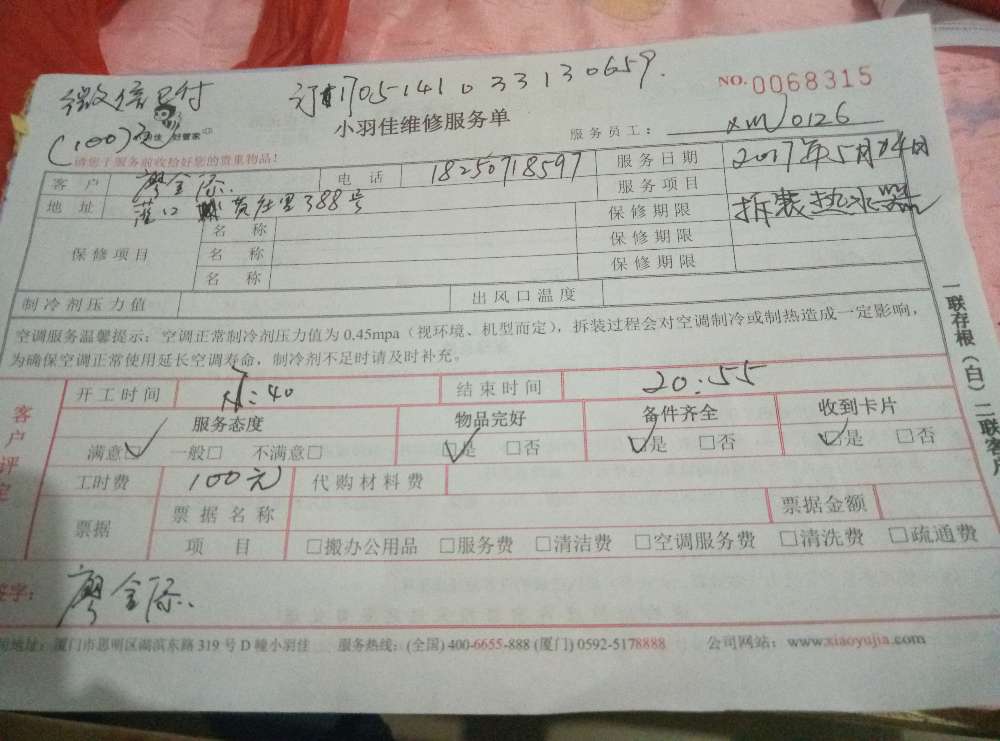 微信已付
订1705141033130659.
NO.0068315
(100)元
好管家
小羽佳维修服务单
服务员工： xm0126
请您于服务前收给好您的贵重物品！
客户 廖金添. 电话 18250718597 服务日期 2017年5月14日
地址 灌口 黄庄里388号 服务项目 拆装热水器
保修项目 名称 保修期限
名称 保修期限
名称 保修期限
制冷剂压力值 出风口温度
空调服务温馨提示：空调正常制冷剂压力值为0.45mpa（视环境、机型而定），拆装过程会对空调制冷或制热造成一定影响，
为确保空调正常使用延长空调寿命，制冷剂不足时请及时补充。
客户评定
开工时间 :40 结束时间 20:55
服务态度 物品完好 备件齐全 收到卡片
满意☑ 一般□ 不满意□ ☑是 □否 ☑是 □否 ☑是 □否
工时费 100元 代购材料费
票据 票据名称 票据金额
项目 □搬办公用品 □服务费 □清洁费 □空调服务费 □清洗费 □疏通费
签字： 廖金添.
地址：厦门市思明区湖滨东路319号D幢小羽佳 服务热线：(全国) 400-6655-888 (厦门) 0592-5178888 公司网站：www.xiaoyujia.com
一联存根（白）二联客户